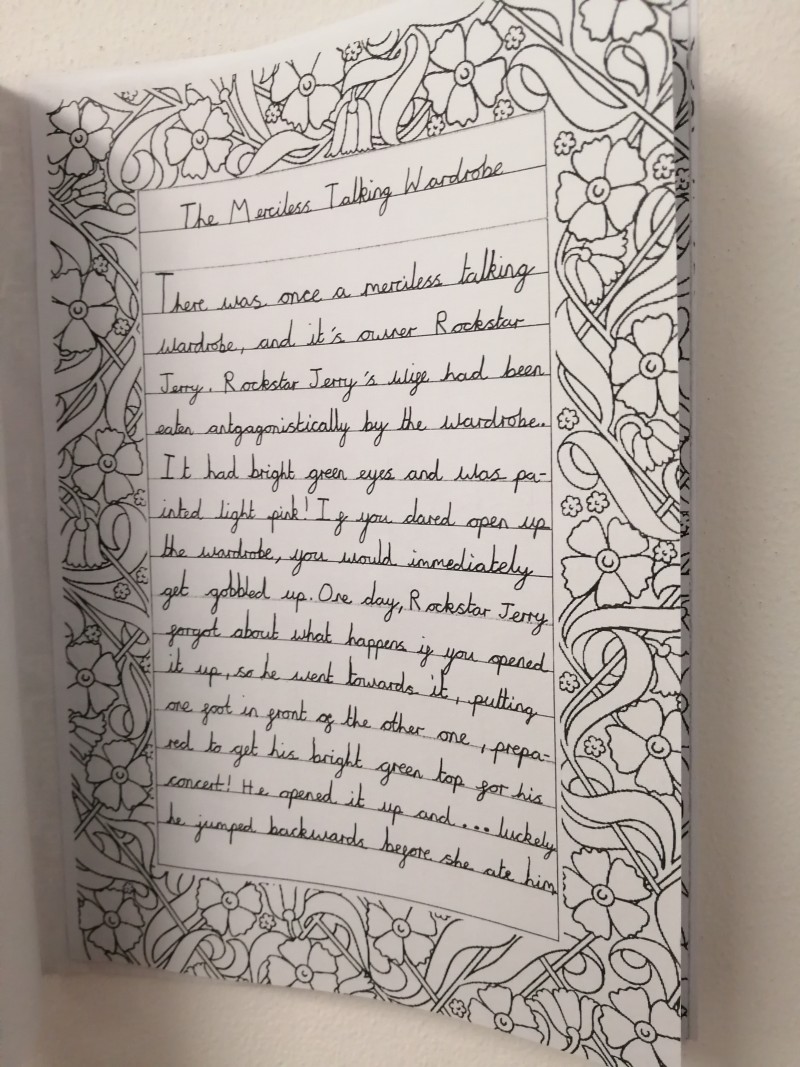 The Merciless Talking Wardrobe
There was once a merciless talking
wardrobe, and it's owner Rockstar
Jerry. Rockstar Jerry's wife had been
eaten antgagonistically by the wardrobe..
It had bright green eyes and was pa-
inted light pink! If you dared open up
the wardrobe, you would immediately
get gobbled up. One day, Rockstar Jerry
forgot about what happens if you opened
it up, so he went towards it, putting
one foot in front of the other one, prepa-
red to get his bright green top for his
concert! He opened it up and... luckely
he jumped backwards before she ate him